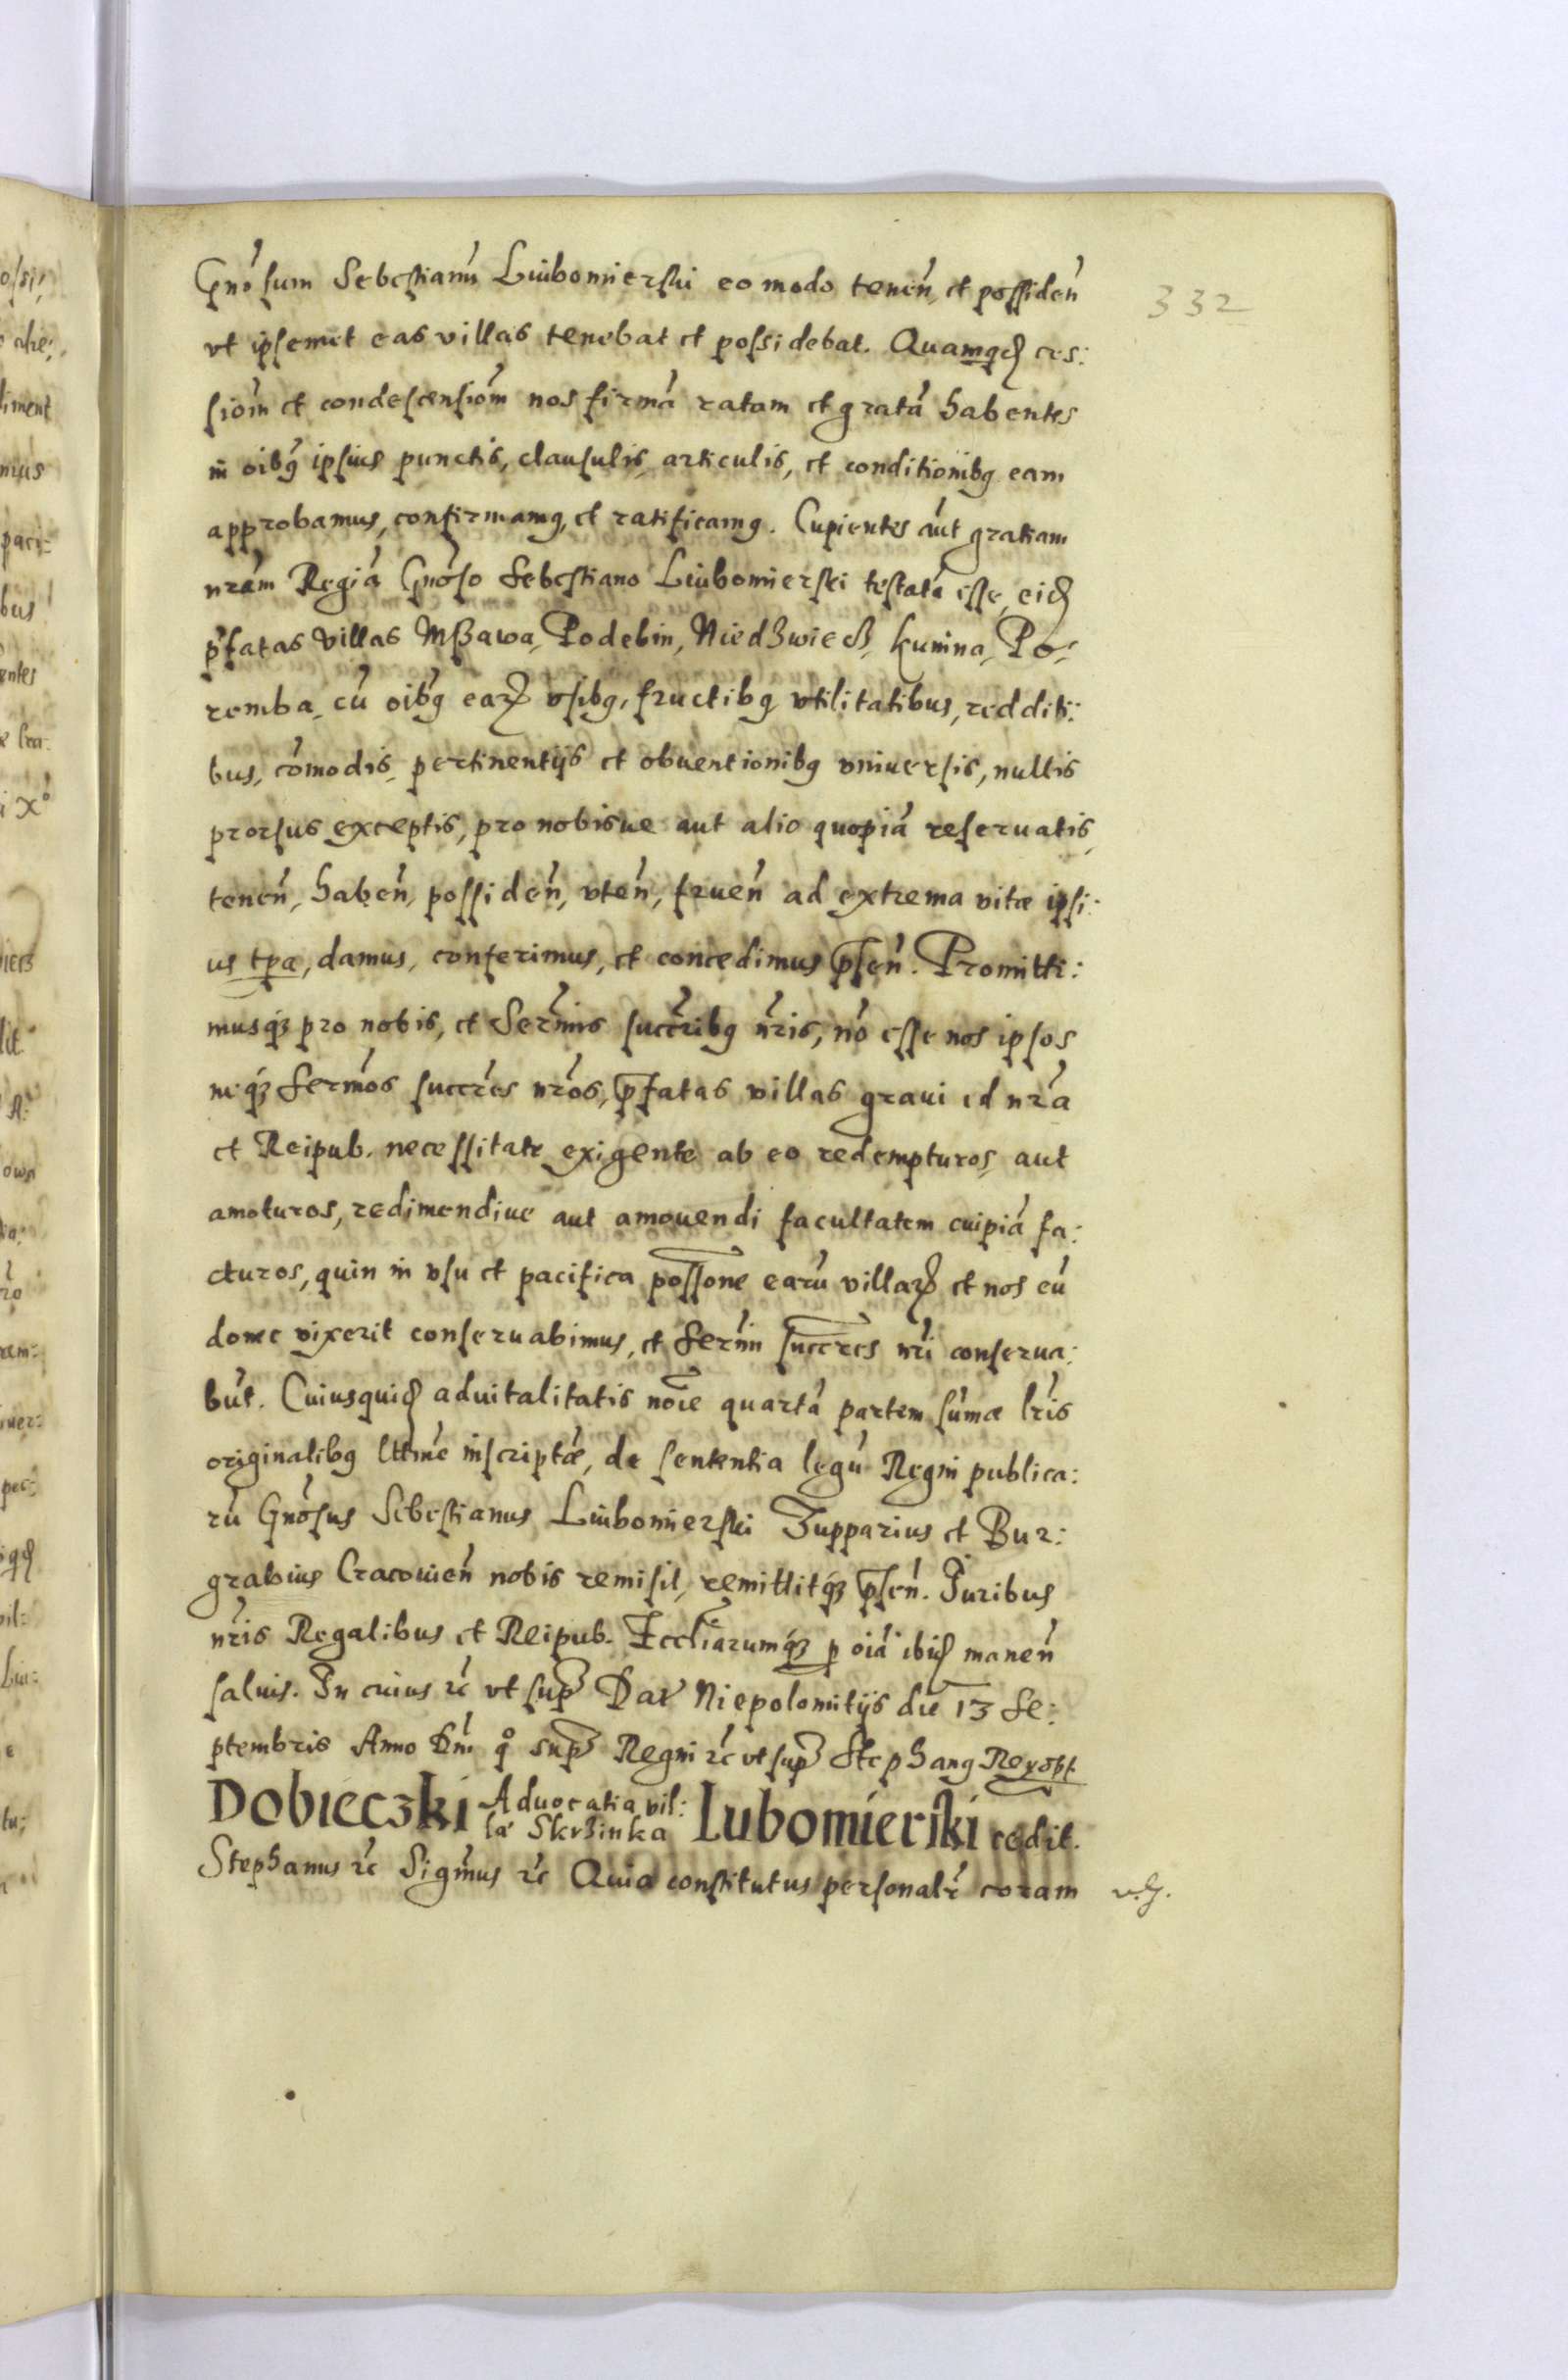 332
Gnōsum Sebestianū Liubomierski eo modo tenen̄, et possiden̄
vt ipsemet eas villas tenebat et possidebat. Quamqđ ces:
siōm et condescensiōm nos firmā ratam et gratā habentes
in oībꝰ ipsius punctis, clausulis, articulis, et conditionibꝰ eam
approbamus, confirmamꝰ, et ratificamꝰ. Cupientes aūt gratiam
nr̄am Regiā Gnōso Sebestiano Liubomierski testatā esse, eiđ
p̄fatas villas Mßawa, Podebin, Niedzwiedz, Kunina, Po:
remba, cū oībꝰ earꝝ vsibꝰ, fructibꝰ vtilitatibus, redditi:
bus, cōmodis, pertinentijs et obuentionibꝰ vniuersis, nullis
prorsus exceptis, pro nobisue aut alio quopiā reseruatis,
tenen̄, haben̄, possiden̄, vten̄, fruen̄ ad extrema vitæ ipsi:
us tp̄a, damus, conferimus, et concedimus p̄sen̄. Promitti:
musqꝫ pro nobis, et Serm̄is succr̄ibꝰ nr̄is, nō esse nos ipsos
neqꝫ serm̄os succr̄es nr̄os, p̄fatas villas graui ed nr̄a
et Reipub. necessitate exigente ab eo redempturos, aut
amoturos, redimendiue aut amouendi facultatem cuipiā fa:
cturos, quin in vsu et pacifica poss̄one earū villarꝝ et nos eū
donec vixerit conseruabimus, et Serm̄i succr̄es nr̄i conserua:
būt. Cuiusquiđ aduitalitatis noīe quartā partem sūmæ lr̄is
originalibꝰ lttīme inscriptæ, de sententia legū Regni publica:
rū Gnōsus Sebestianus Liubomierski Zupparius et Bur:
grabius Cracouien̄ nobis remisit, remittitqꝫ p̄sen̄. Juribus
nr̄is Regalibus et Reipub. Eccl̄iarumqꝫ ꝑ oīa ibiđ manen̄
saluis. In cuius ꝛc̄ vt sup̄ Dat̄ Niepolomitijs die 13 Se:
ptembris Anno Dn̄i qº sup̄ Regni ꝛc̄ vt sup̄ Stephanꝰ Rex sp̄t
Dobieczki Aduocatia vil:
læ Skrzinka Lubomierski cedit.
Stephanus ꝛc̄ Sigm̄us ꝛc̄ Quia constitutus personalr̄ coram